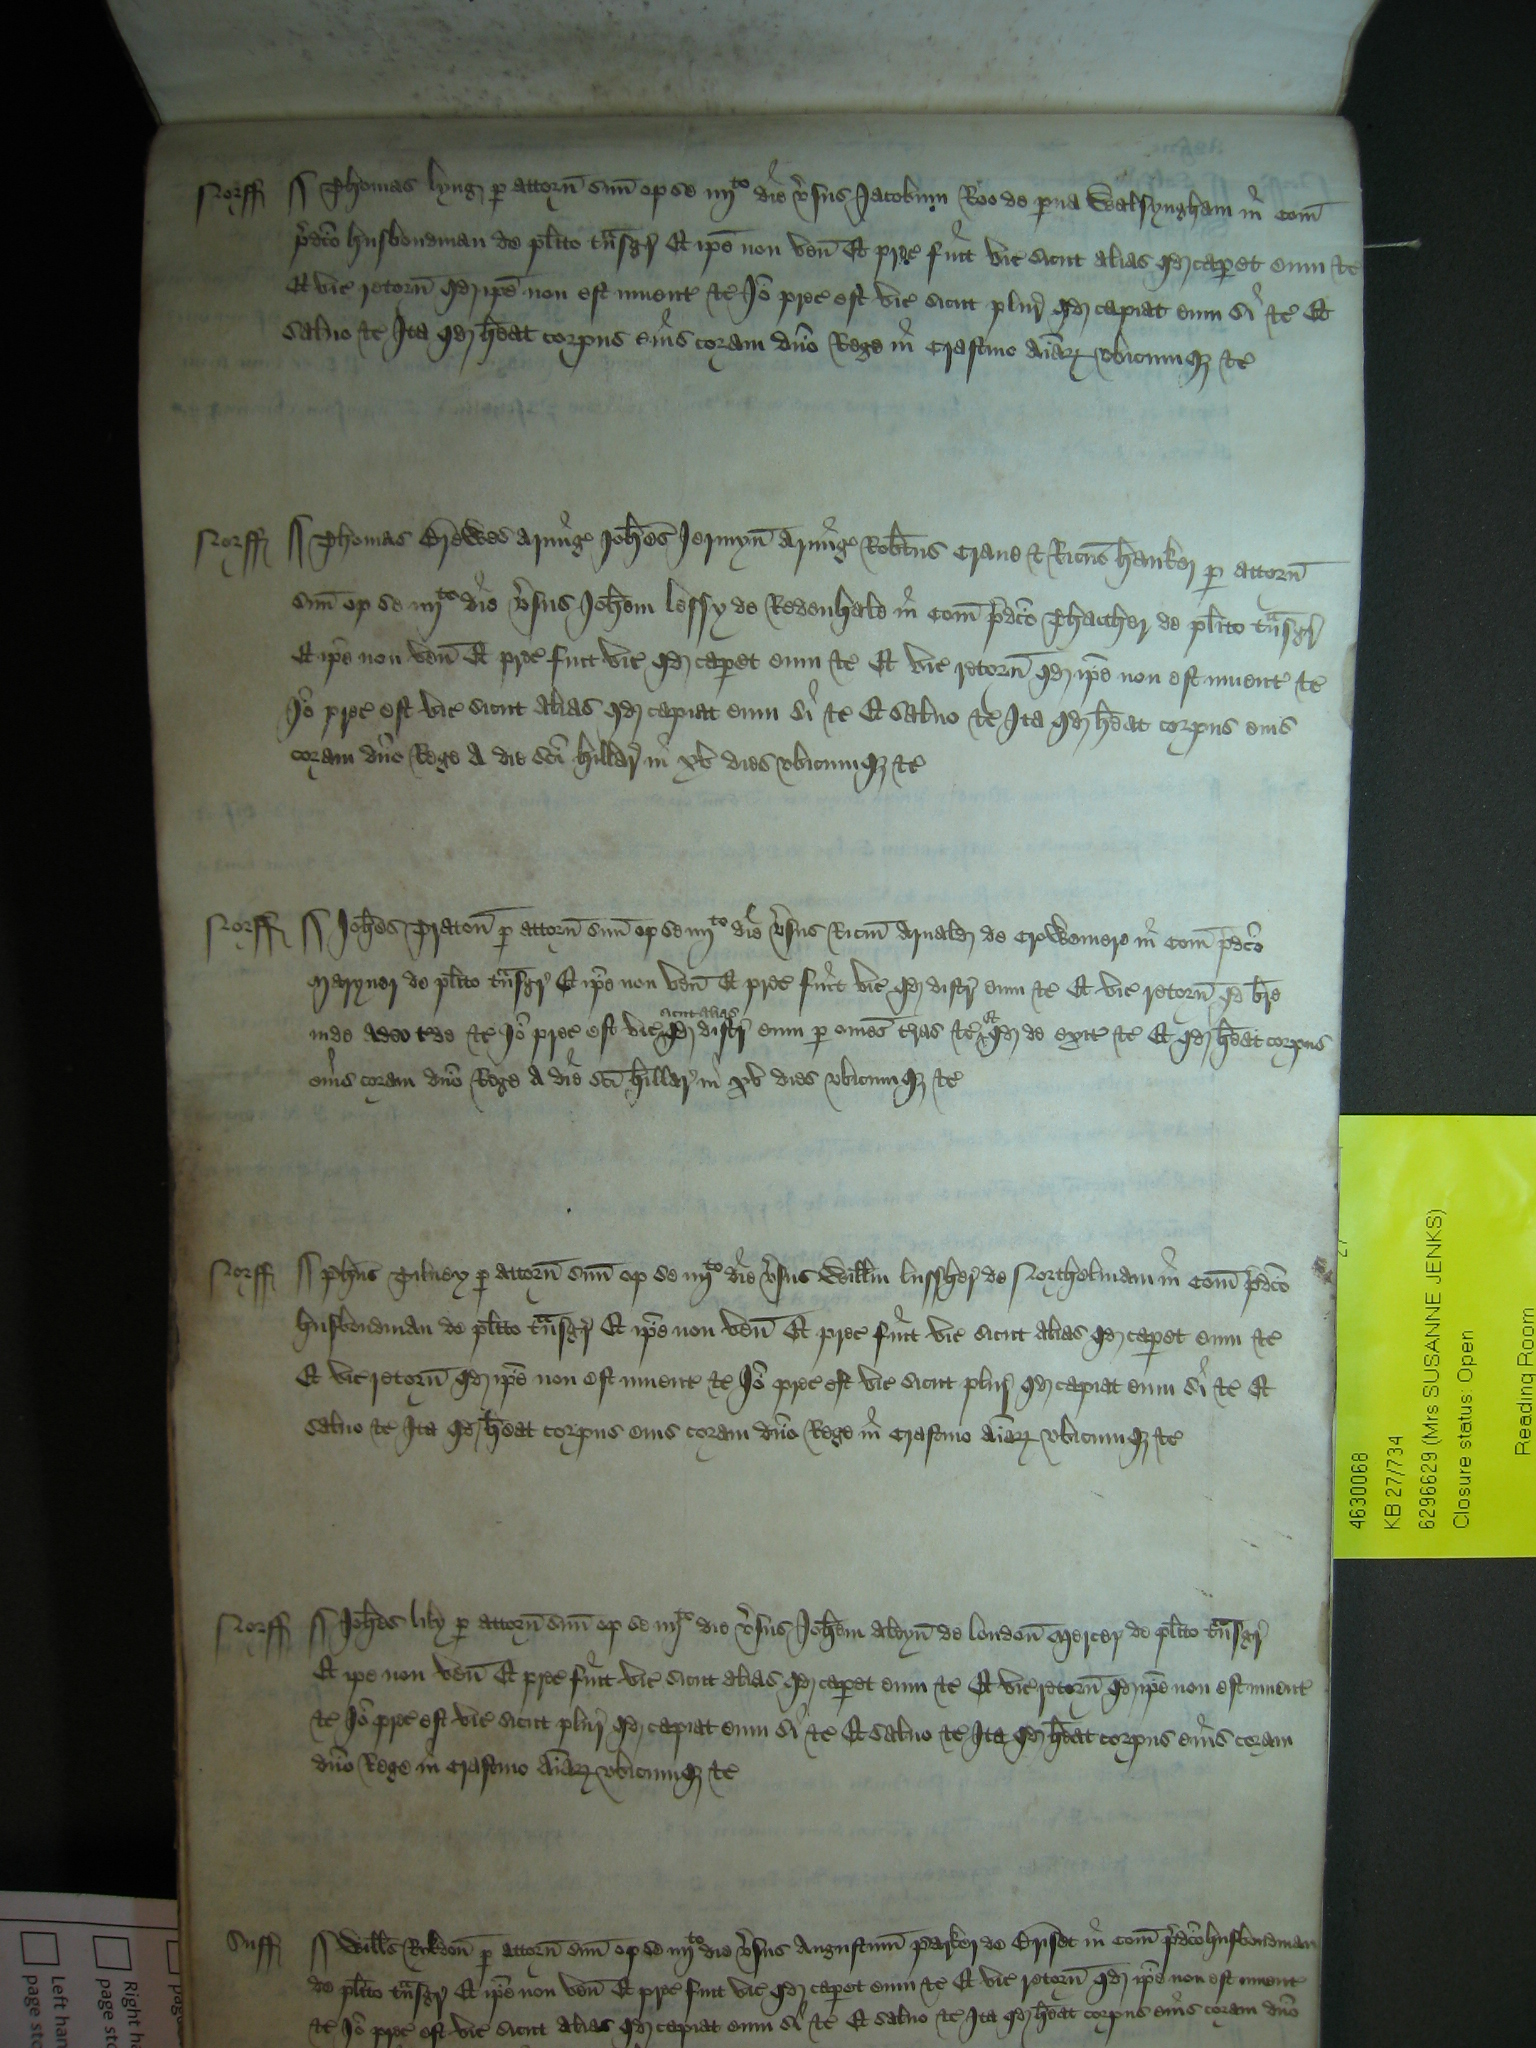 Norff Thomas Lyng p attorn suu op se iiijto die vsus Jacobum Roo de pua Walsyngham in Com
pdco husbondman de plito tnsgr Et ipe non ven Et prec fuit vic sicut alias qd capet eum &c
Et vic retorn qd ipe non est invent &c Jo prec est vic sicut plur qd capiat eum si &c Et
salvo &c Ita qd heat corpus eius coram dno Rege in Crastino Aiar ubicumq &c
Norff Thomas Brewes Armig Johes Jermyn Armig Robtus Crane & Ricus hanker p attorn
suu op se iiijto die vsus Johem leffy de Redenhale in Com pdco Thacther de plito tnsgr
Et ipe non ven Et prec fuit vic qd capet eum &c Et vic retorn qd ipe non est invent &c
Jo prec est vic sicut alias qd capiat eum si &c Et salvo &c Ita qd heat corpus eius
coram dno Rege A die sci hillar in xv dies ubicumq &c
Norff Johes Praton p attorn suu op se iiijto die vsus Ricm Arnald de Crowemere in Com pdco
Maryner de plito tnsgr Et ipe non ven Et prec fuit vic qd distr eum &c Et vic retorn qd bre
inde adeo tde &c Jo prec est vic sicut alias qd distr eum p omes tras &c Et qd de exit &c Et qd heat corpus
eius coram dno Rege A die sci hillar in xv dies ubicumq &c
Norff Phus Tilney p attorn suu op se iiijto die vsus Willm lussher de Northelmam in Com pdco
husbondman de plito tnsgr Et ipe non ven Et prec fuit vic sicut alias qd capet eum &c
Et vic retorn qd ipe non est invent &c Jo prec est vic sicut plur qd capiat eum si &c Et
salvo &c Ita qd heat corpus eius coram dno Rege in Crastino Aiar ubicumq &c
Norff Johes lily p attorn suu op se iiijto die vsus Johem Aleyn de london Mercer de plito tnsgr
Et ipe non ven Et prec fuit vic sicut alias qd capet eum &c Et vic retorn qd ipe non est invent
&c Jo prec est vic sicut plur qd capiat eum si &c Et salvo &c Ita qd heat corpus eius coram
dno Rege in Crastino Aiar ubicumq &c
Suff Wills Rikdon p attorn suu op se iiijto die vsus Augustinu Parker de Briset in Com pdco husbondman
de plito tnsgr Et ipe non ven Et prec fuit vic qd capet eum &c Et vic retorn qd ipe non est invent
&c Jo prec est vic sicut alias qd capiat eum si &c Et salvo &c Ita qd heat corpus eius coram dno
4630068
KB 27/734
6296629 (Mrs SUSANNE JENKS)
Closure status: Open
Reading Room
Right ha
page sto
Left han
page sto